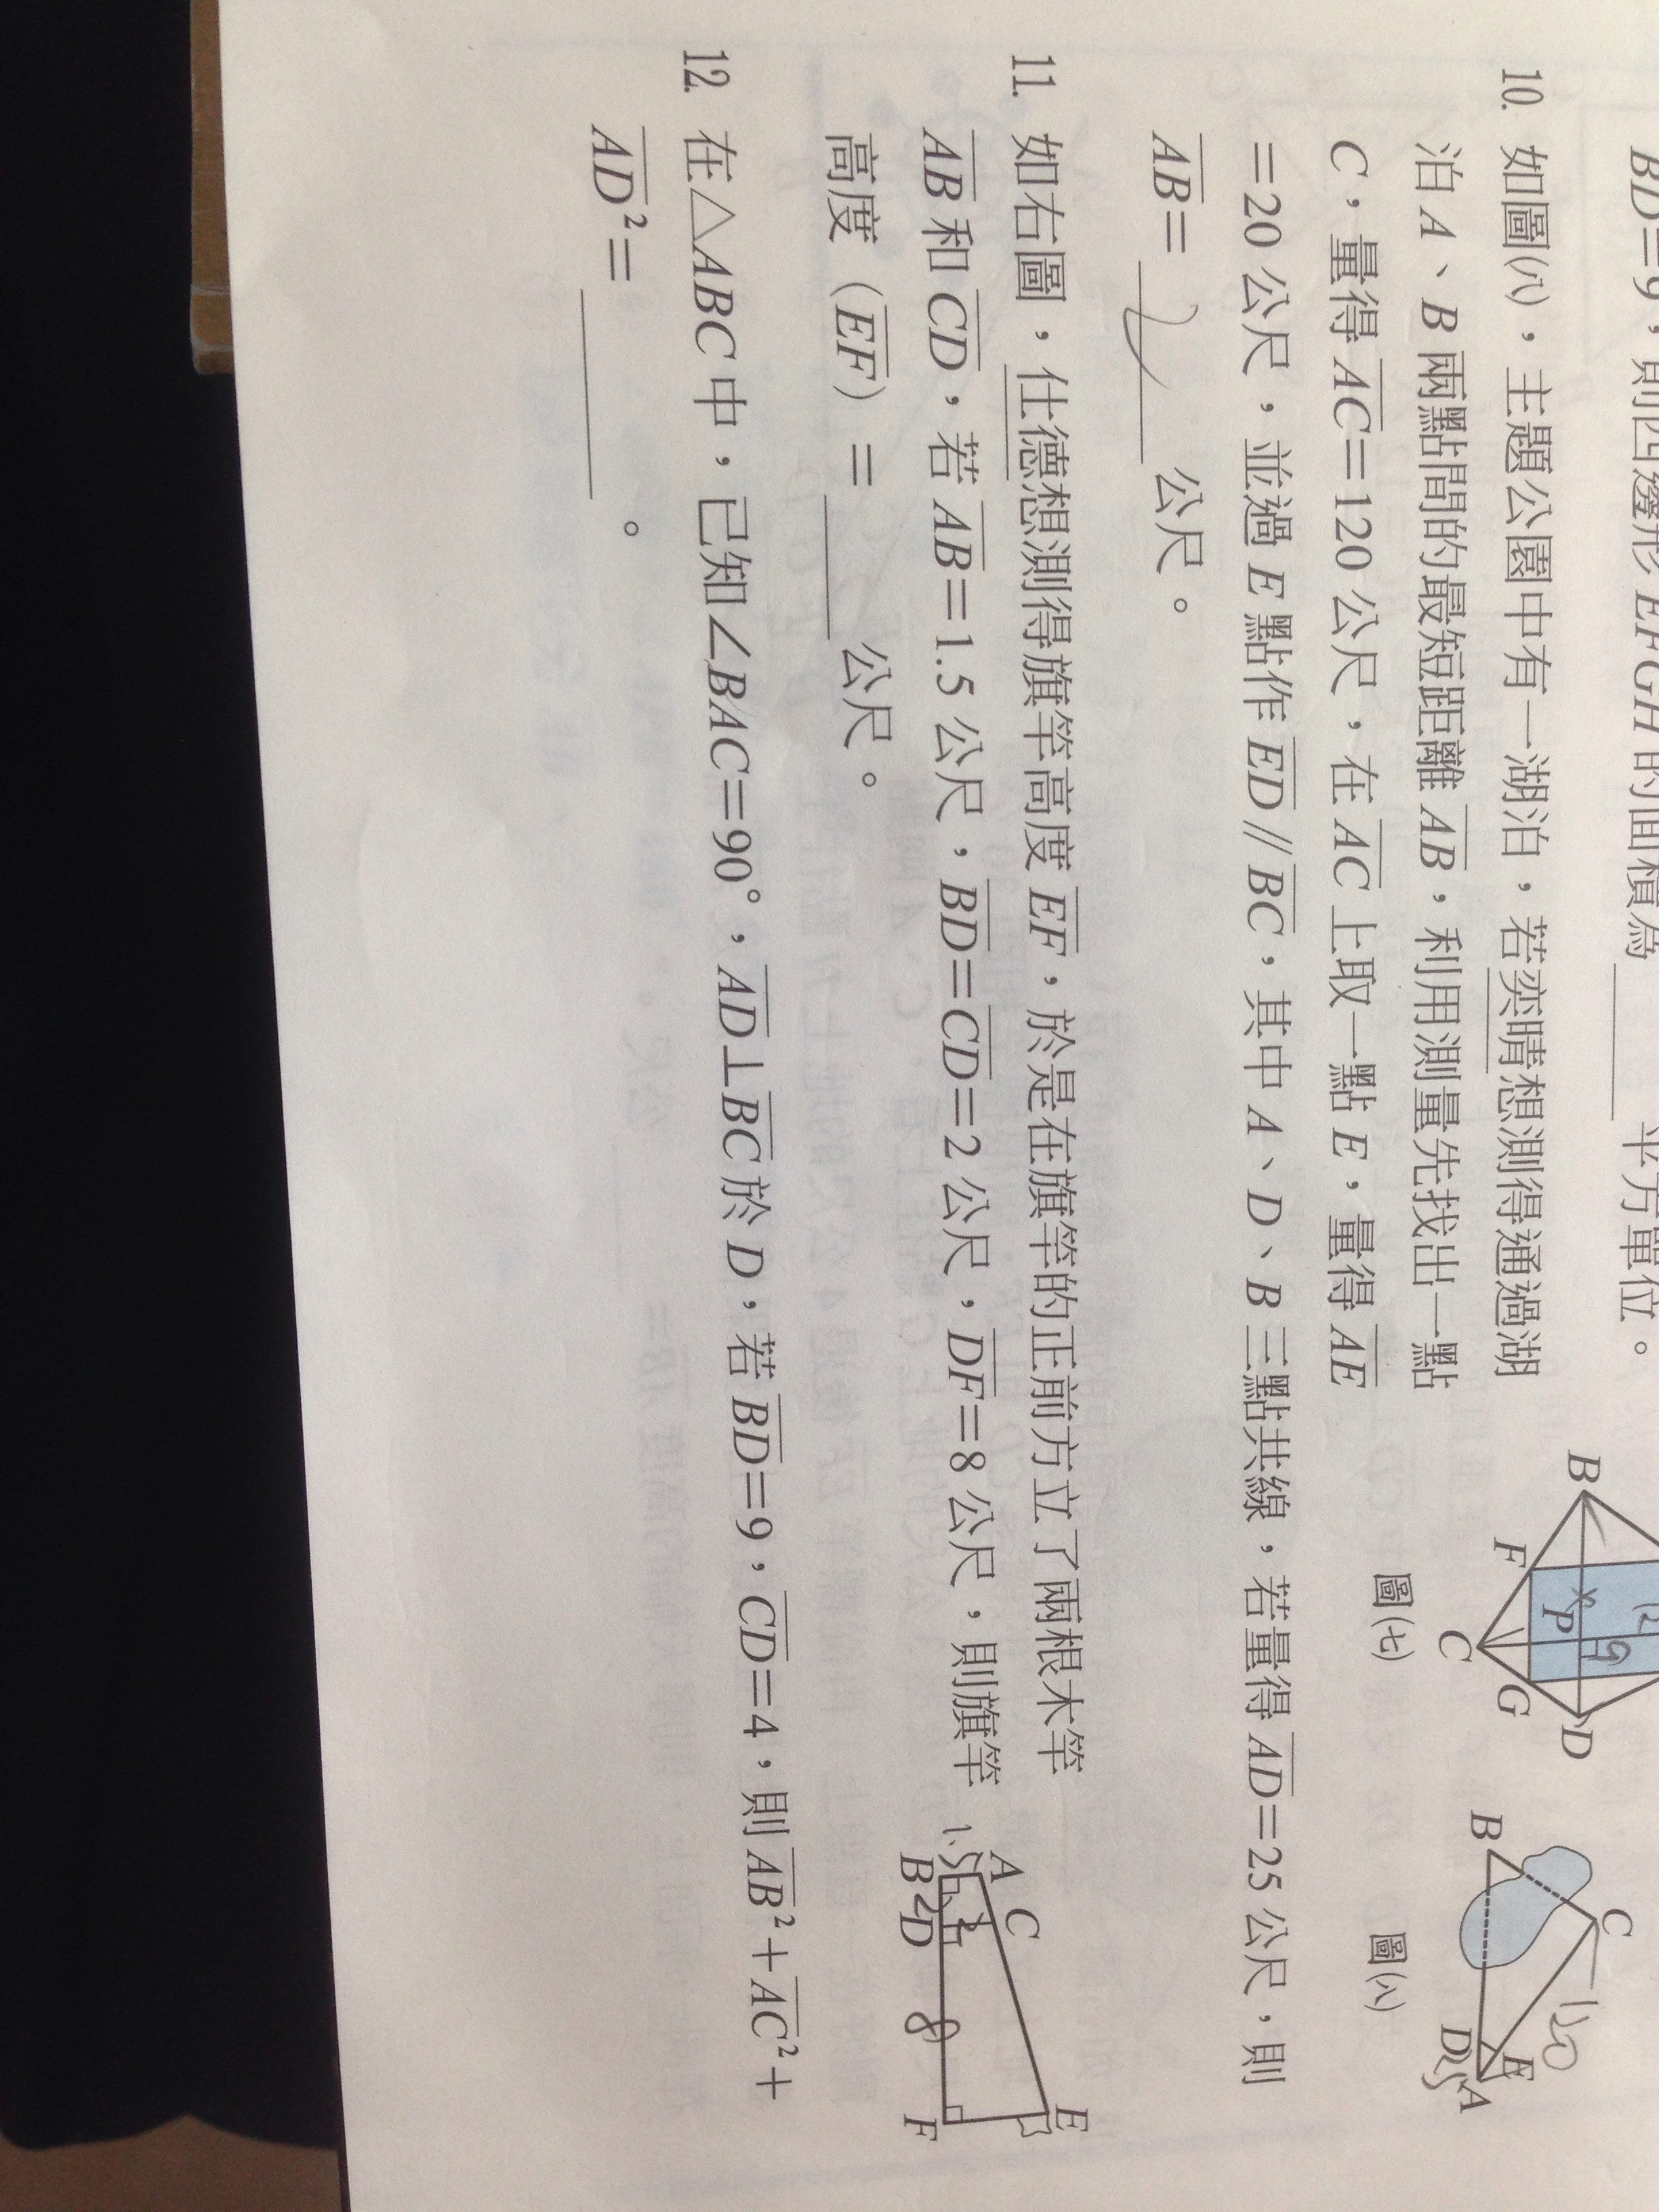 BD=9，則四邊形 EFGH 的面積為______平方單位。
10. 如圖(八)，主題公園中有一湖泊，若奕晴想測得通過湖
泊 A、B 兩點間的最短距離 AB，利用測量先找出一點
C，量得 AC=120 公尺，在 AC 上取一點 E，量得 AE
=20 公尺，並過 E 點作 ED // BC，其中 A、D、B 三點共線，若量得 AD=25 公尺，則
AB=______公尺。
B
F
P
12
9
C
G
D
圖(七)
B
C
120
D
E
A
圖(八)
11. 如右圖，仕德想測得旗竿高度 EF，於是在旗竿的正前方立了兩根木竿
AB 和 CD，若 AB=1.5 公尺，BD=CD=2 公尺，DF=8 公尺，則旗竿
高度（EF）=______公尺。
A
C
E
1.5
2
B
2
D
8
F
12. 在△ABC 中，已知∠BAC=90°，AD⊥BC 於 D，若 BD=9，CD=4，則 AB²+AC²+
AD²=______。